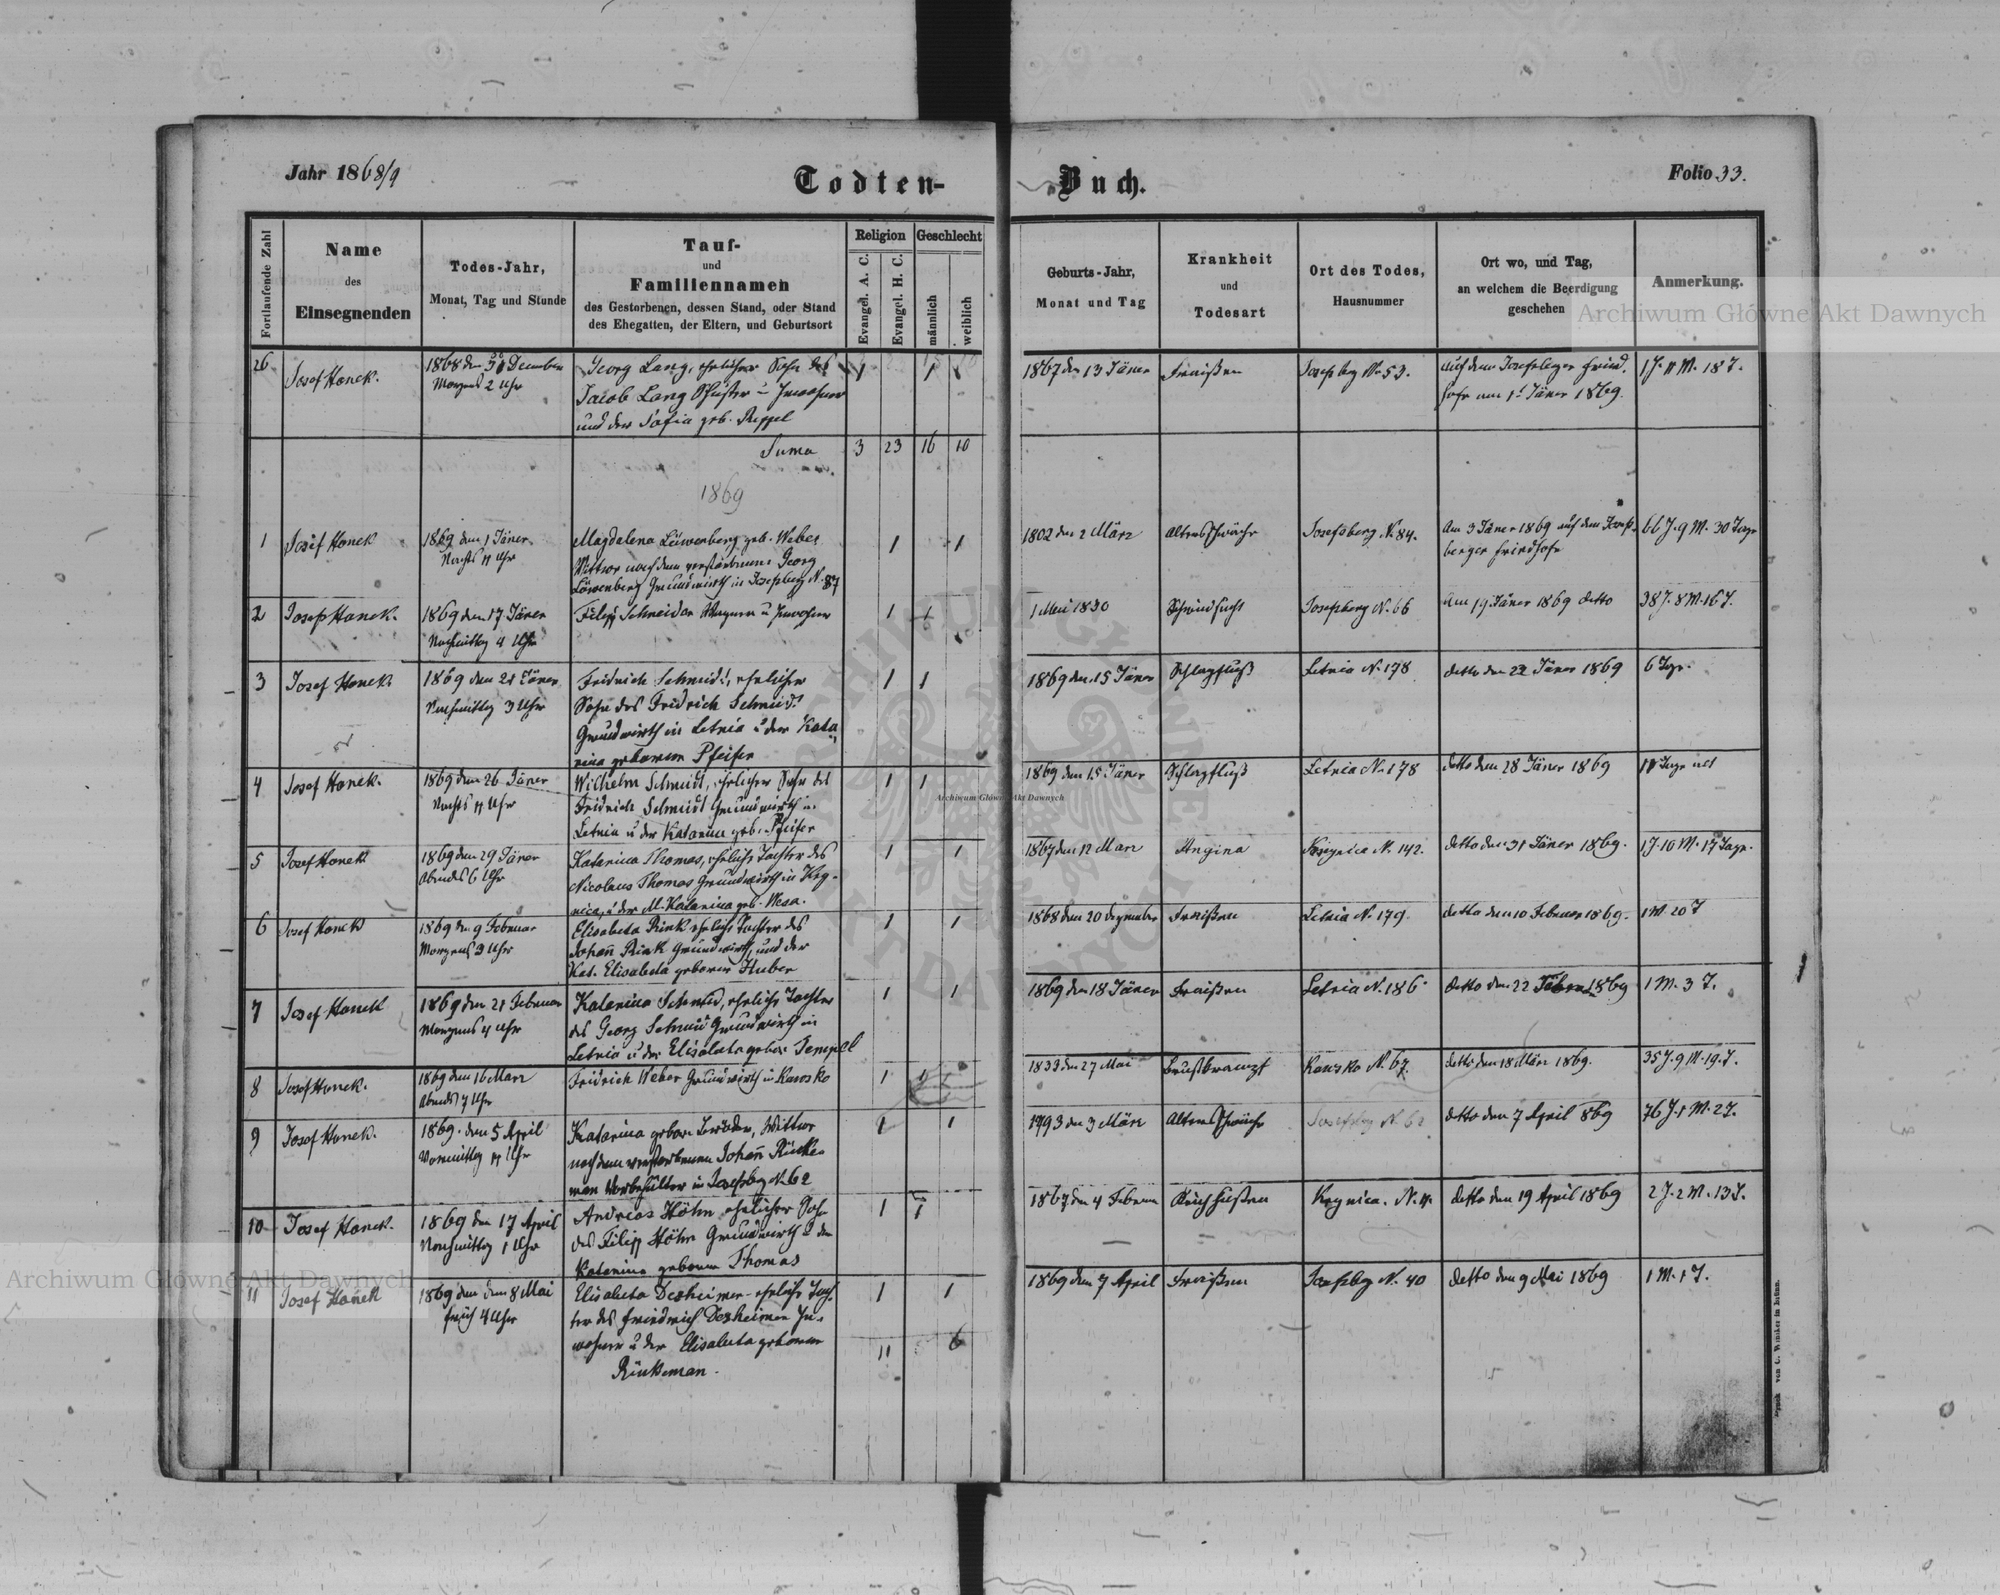 Jahr 1868/9
Todten-Buch.
Folio 33.
Fortlaufende Zahl
Name
des
Einsegnenden
Todes-Jahr,
Monat, Tag und Stunde
Tauf-
und
Familiennamen
des Gestorbenen, dessen Stand, oder Stand
des Ehegatten, der Eltern, und Geburtsort
Religion
Evangel. A. C.
Evangel. H. C.
Geschlecht
männlich
weiblich
Geburts-Jahr,
Monat und Tag
Krankheit
und
Todesart
Ort des Todes,
Hausnummer
Ort wo, und Tag,
an welchem die Beerdigung
geschehen
Anmerkung.
Archiwum Główne Akt Dawnych
26 Josef Hanek. 1868 den December
Morgens 2 Uhr
Georg Lang, ehelicher Sohn des
Jacob Lang Schuster u Inwohner
und der Sofia geb. Reppel
1 1
1867 den 13 Jäner Fraißen Josefsbg No 53. auf dem Josefsberger Fried-
hofe am 1t Jäner 1869. 1 J. 11 M. 18 T.
Suma 3 23 16 10
1869
1 Josef Hanek 1869 den 1 Jäner
Nachts 11 Uhr
Magdalena Löwenberg geb. Weber
Wittwe nach dem verstorbenen Georg
Löwenberg Grundwirth in Josefsbg N. 87
1 1
1802 den 2 März Altersschwäche Josefsberg N. 84. Am 3 Jäner 1869 auf dem Josefs-
berger Friedhofe 66 J. 9 M. 30 Tage
2 Josef Hanek. 1869 den 17 Jäner
Nachmittag 4 Uhr
Filipp Schneider Wagner u Inwohner
1 1
1 Mai 1830 Schwindsucht Josefsberg N. 66 Am 19 Jäner 1869 detto 38 J. 8 M. 16 T.
3 Josef Hanek. 1869 den 21 Jäner
Nachmittag 3 Uhr
Fridrich Schmidt, ehelicher
Sohn des Fridrich Schmidt
Grundwirth in Letnia u der Kata-
rina geborenen Pfeifer
1 1
1869 den 15 Jäner Schlagfluß Letnia N. 178 detto den 22 Jäner 1869 6 Tage.
4 Josef Hanek. 1869 den 26 Jäner
Nachts 11 Uhr
Wilhelm Schmidt, ehelicher Sohn des
Fridrich Schmidt Grundwirth in
Letnia u der Katarina geb. Pfeifer
1 1
1869 den 15 Jäner Schlagfluß Letnia N. 178 detto den 28 Jäner 1869 11 Tage alt
5 Josef Hanek 1869 den 29 Jäner
Abends 6 Uhr
Katarina Thomas, eheliche Tochter des
Nicolaus Thomas Grundwirth in Kry-
nica, u der M. Katarina geb. Wesa.
1 1
1867 den 12 März Angina Krynica N. 142. detto den 31 Jäner 1869. 1 J. 10 M. 17 Tage.
6 Josef Hanek 1869 den 9 Februar
Morgens 3 Uhr
Elisabeta Rink eheliche Tochter des
Johann Rink Grundwirth, und der
Kat. Elisabeta geborene Huber
1 1
1868 den 20 Dezember Fraißen Letnia N. 179. detto den 10 Februar 1869. 1 M. 20 T
7 Josef Hanek 1869 den 21 Februar
Morgens 4 Uhr
Katarina Schmid, eheliche Tochter
des Georg Schmid Grundwirth in
Letnia u der Elisabeta gebor. Tempel
1 1
1869 den 18 Jäner Fraißen Letnia N. 186. detto den 22 1869 1 M. 3 T.
8 Josef Hanek. 1869 den 16 März
Abends 7 Uhr
Fridrich Weber Grundwirth in Ravsko
1 1
1833 den 27 Mai Brustkrampf Ravsko N. 67. detto den 18 März 1869. 35 J. 9 M. 19 T.
9 Josef Hanek. 1869. den 5 April
Vormittag 11 Uhr
Katarina gebor. Wittwe
nach dem verstorbenen Johann Rinke-
man Vorbehälter in Josefsbg N. 62
1 1
1793 den 3 März Altersschwäche Josefsbg N. 62 detto den 7 April 869 76 J. 1 M. 2 T.
10 Josef Hanek. 1869 den 17 April
Nachmittag 1 Uhr
Andreas Höhn ehelicher Sohn
des Filipp Höhn Grundwirth u der
Katarina geborene Thomas
1 1
1867 den 4 Februar Keuchhusten Krynica. N. 11. detto den 19 April 1869 2 J. 2 M. 13 T.
11 Josef Hanek 1869 den den 8 Mai
früh 4 Uhr
Elisabeta Dexheimer eheliche Toch-
ter des Friedrich Dexheimer In-
wohner u der Elisabeta geborene
Rinkeman.
1 1
1869 den 7 April Fraißen Josefsbg N. 40 detto den 9 Mai 1869 1 M. 1 T.
11 6
Archiwum Główne Akt Dawnych
Archiwum Główne Akt Dawnych